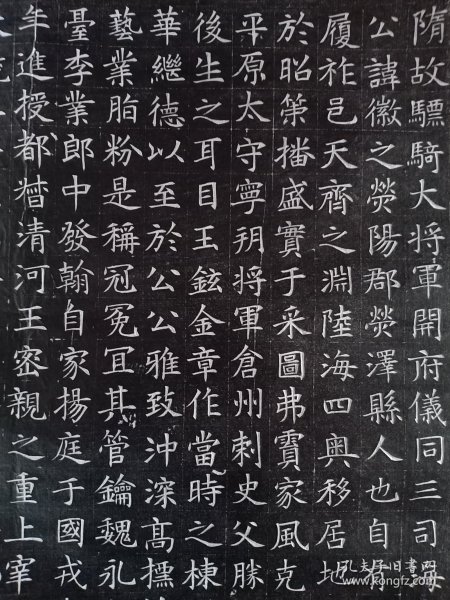 隋故驃騎大将軍開府儀同三司
公諱徽之熒陽郡熒澤縣人也自
履祚邑天齊之淵陸海四奥移居地
於昭第播盛實于采圖弗賈家風克
平原太守寧朔将軍倉州刺史父勝
後生之耳目王鉉金章作當時之棟
華繼德以至於公公雅致沖深髙摽
藝業脂粉是稱冠冕冝其管鑰魏永
臺李業郎中發翰自家揚庭于國戎
年進授都督清河王宻親之重上宰
孔夫子旧书网
kongfz.com